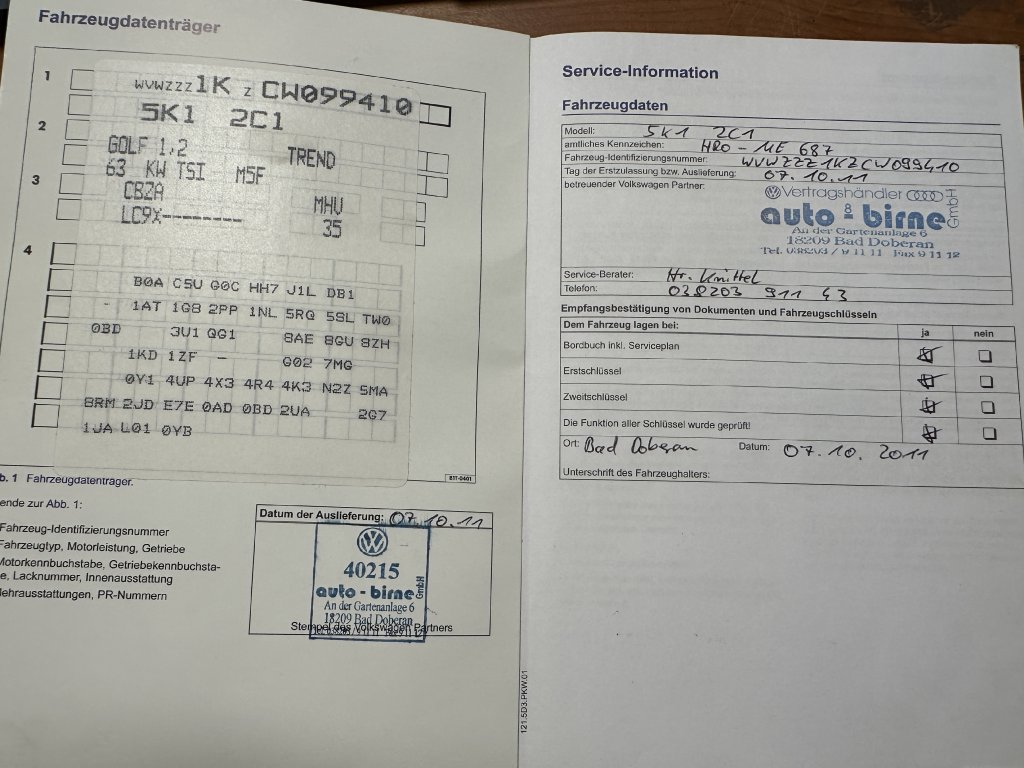 Fahrzeugdatenträger
1
WVWZZZ1K Z CW099410
5K1 2C1
2
GOLF 1,2 TREND
63 KW TSI M5F
3
CBZA MHU
LC9X-------- 35
4
B0A C5U G0C HH7 J1L DB1
- 1AT 1G8 2PP 1NL 5RQ 5SL TW0
0BD 3U1 QG1 8AE 8GU 8ZH
1KD 1ZF - G02 7MG
0Y1 4UP 4X3 4R4 4K3 N2Z 5MA
8RM 2JD E7E 0AD 0BD 2UA 2G7
1JA L01 0YB
B1T-0401
b. 1 Fahrzeugdatenträger.
ende zur Abb. 1:
Fahrzeug-Identifizierungsnummer
Fahrzeugtyp, Motorleistung, Getriebe
Motorkennbuchstabe, Getriebekennbuchsta-
e, Lacknummer, Innenausstattung
ehrausstattungen, PR-Nummern
Datum der Auslieferung: 07.10.11
40215
auto - birne GmbH
An der Gartenanlage 6
18209 Bad Doberan
Stempel des Volkswagen Partners
121.5D3.PKW.01
Service-Information
Fahrzeugdaten
Modell: 5K1 2C1
amtliches Kennzeichen: HRO - ME 687
Fahrzeug-Identifizierungsnummer: WVWZZZ1KZCW099410
Tag der Erstzulassung bzw. Auslieferung: 07.10.11
betreuender Volkswagen Partner:
Vertragshändler
auto & birne GmbH
An der Gartenanlage 6
18209 Bad Doberan
Tel. 038203 / 9 11 11 Fax 9 11 12
Service-Berater: Hr. Knittel
Telefon: 038203 911 43
Empfangsbestätigung von Dokumenten und Fahrzeugschlüsseln
Dem Fahrzeug lagen bei: ja nein
Bordbuch inkl. Serviceplan
Erstschlüssel
Zweitschlüssel
Die Funktion aller Schlüssel wurde geprüft!
Ort: Bad Doberan Datum: 07.10.2011
Unterschrift des Fahrzeughalters: